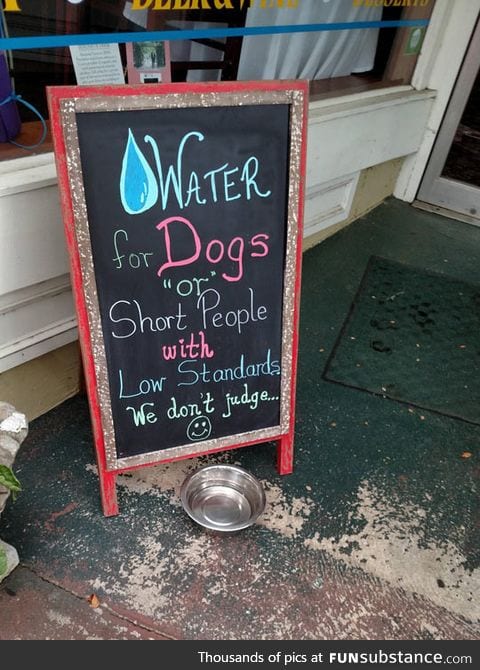 BEER & WINE DESSERTS
WATER
for Dogs
"or"
Short People
with
Low Standards
We don't judge...
Thousands of pics at FUNsubstance.com